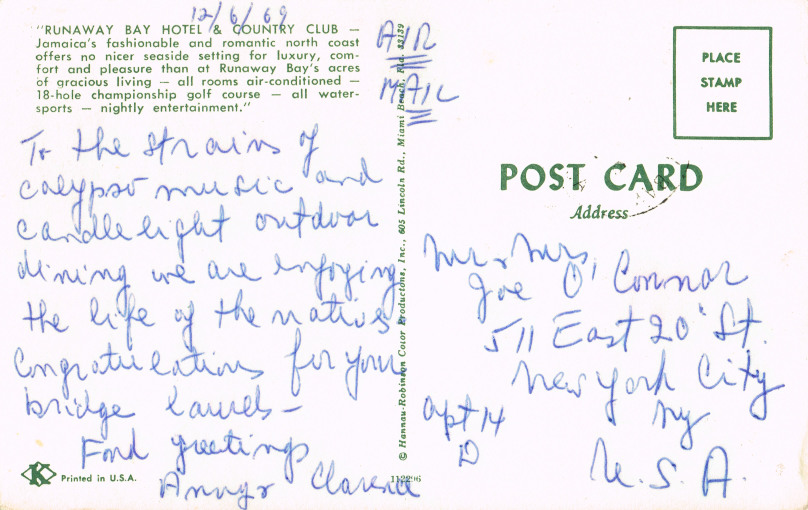 12/6/69
"RUNAWAY BAY HOTEL & COUNTRY CLUB —
Jamaica's fashionable and romantic north coast
offers no nicer seaside setting for luxury, com-
fort and pleasure than at Runaway Bay's acres
of gracious living — all rooms air-conditioned —
18-hole championship golf course — all water-
sports — nightly entertainment."
To the strains of
calypso music and
candlelight outdoor
dining we are enjoying
the life of the natives
Congratulations for your
bridge laurels —
Fond greetings
Clarence
Printed in U.S.A.
K
AIR
MAIL
© Hannau-Robinson Color Productions, Inc., 605 Lincoln Rd., Miami Beach, Fla. 33139
PLACE
STAMP
HERE
POST CARD
Address
Mr & Mrs.
Joe O'Connor
511 East 20' St.
New York City
Apt 14 NY
D
U.S.A.